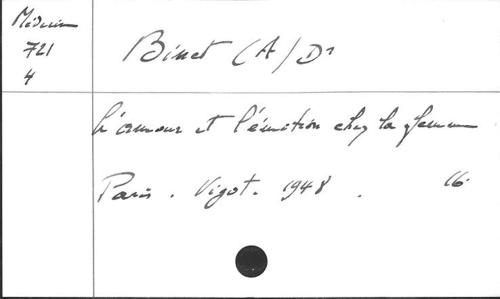 Médecine
721
4
Binet (A) Dr
L'amour et l'émotion chez la femme
Paris. Vigot. 1948. 16°